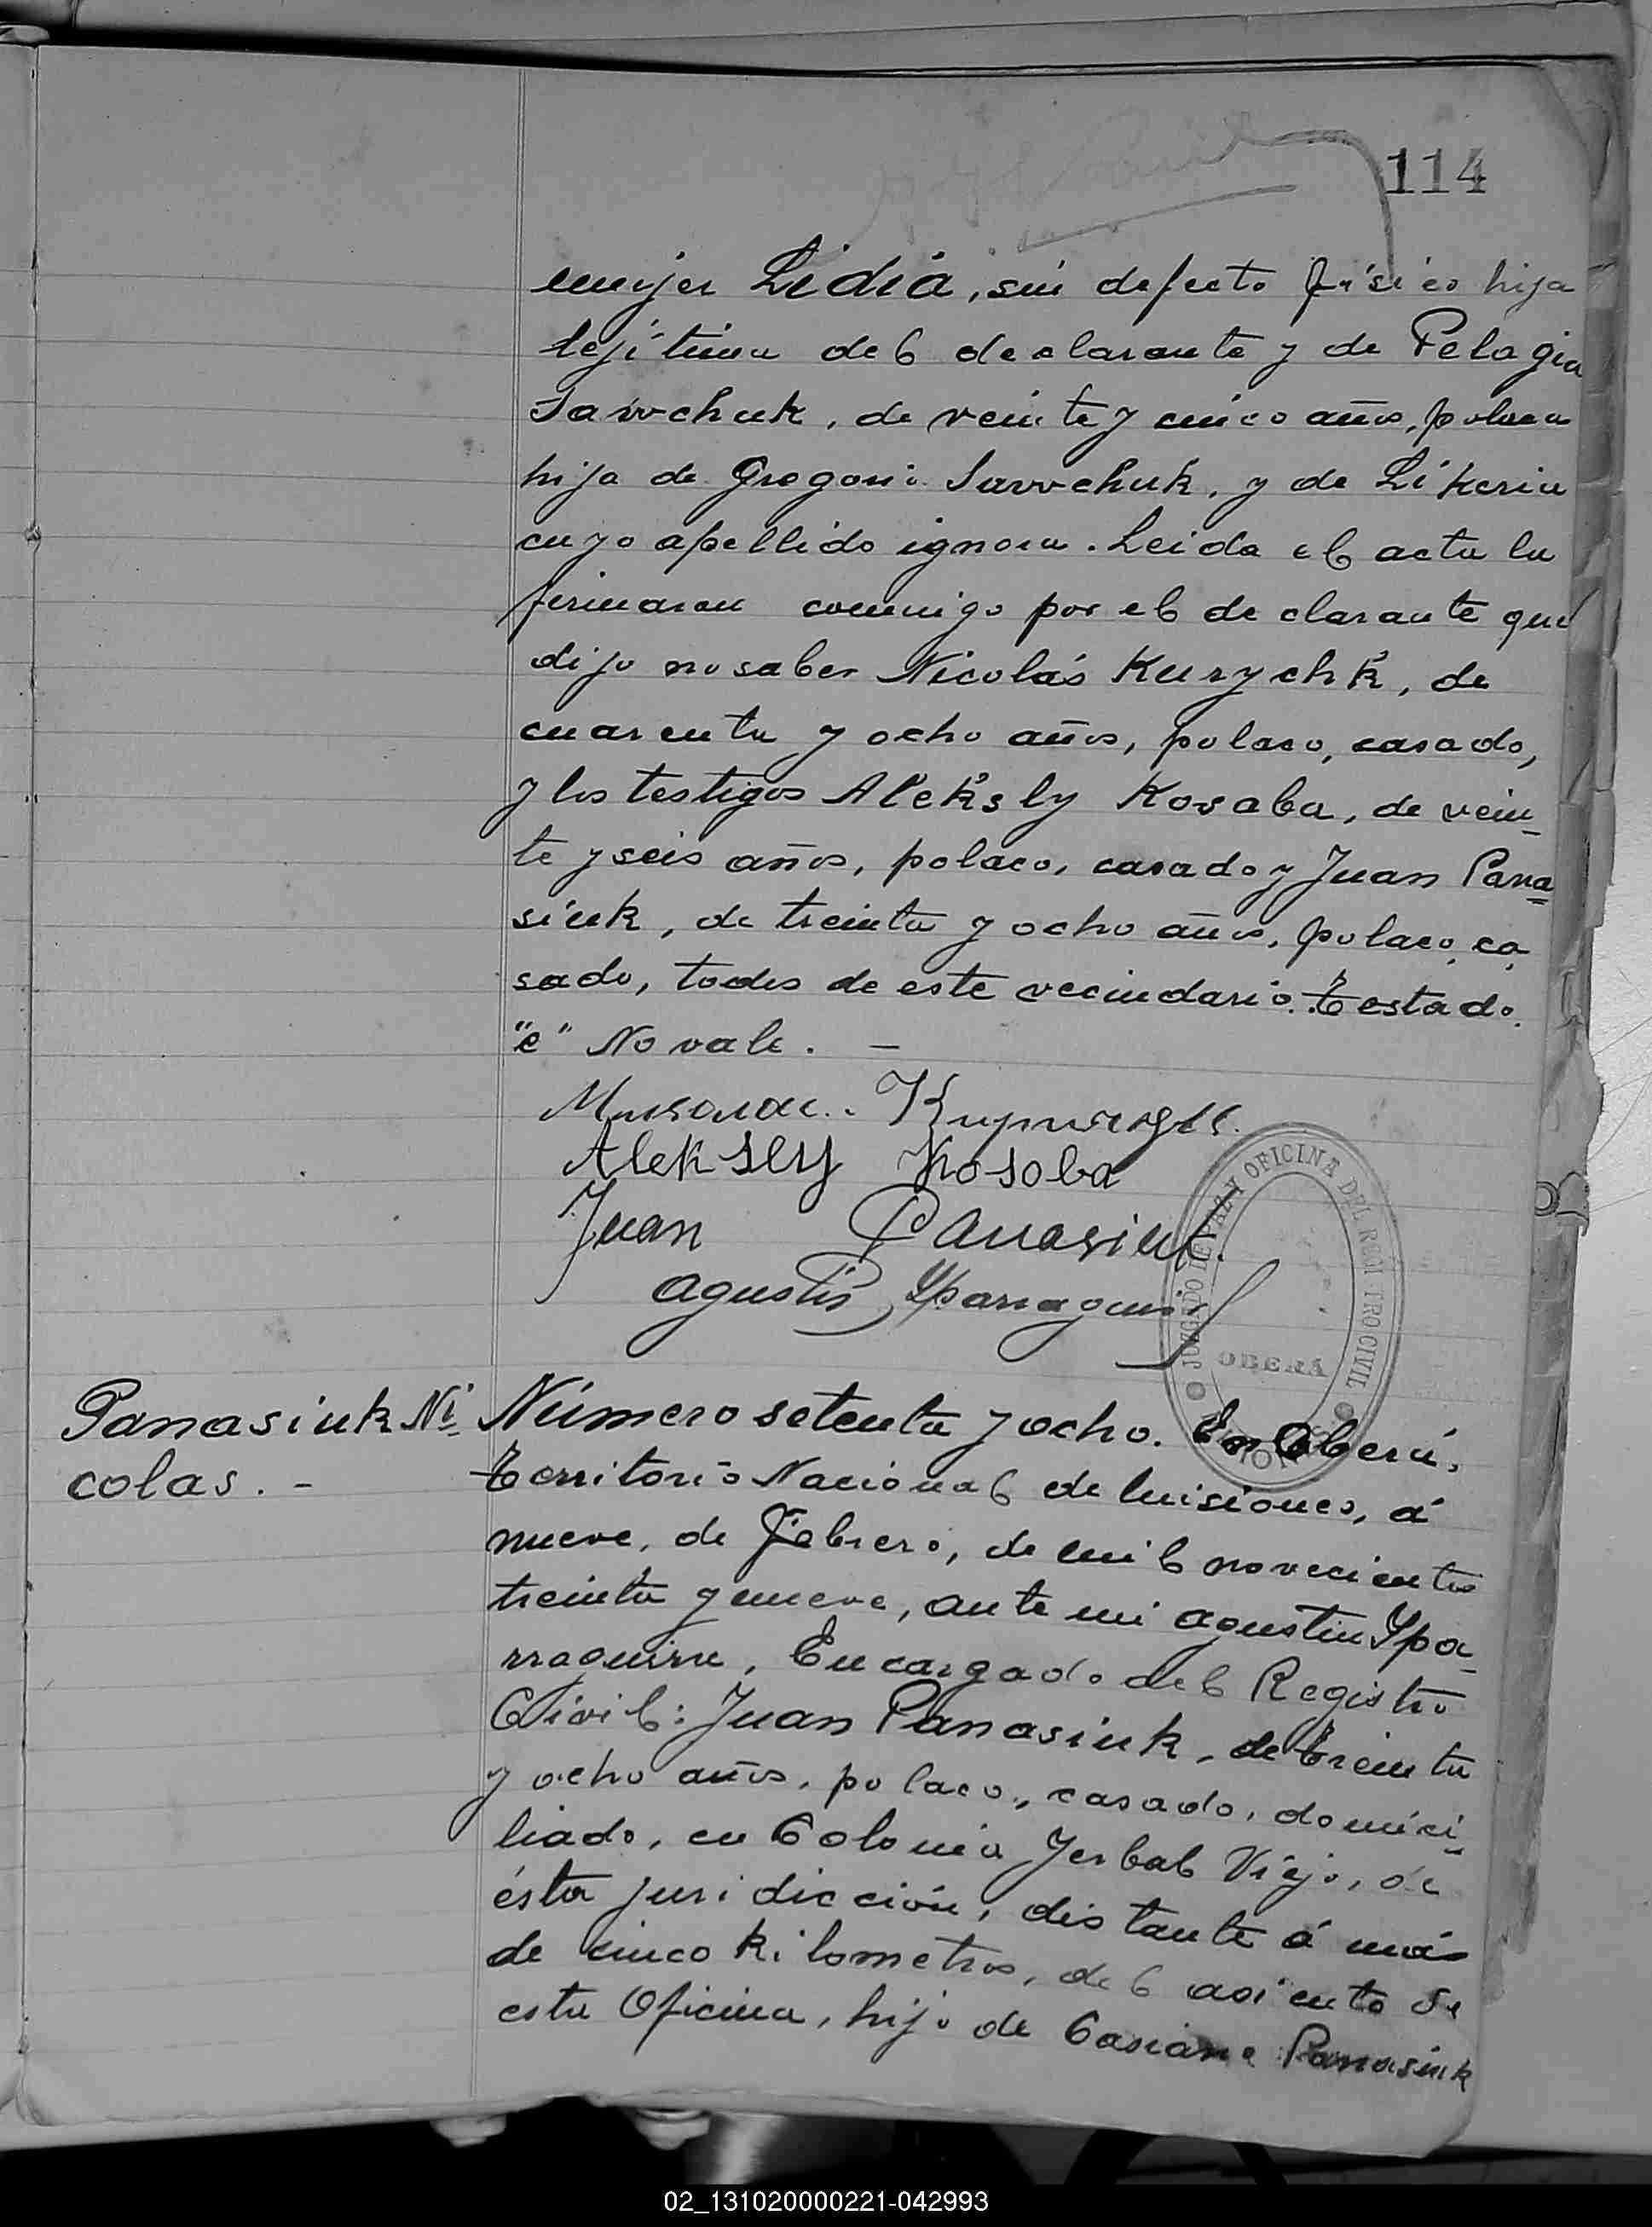 114
mujer Lidia, sin defecto físico hija
lejítima del declarante y de Pelagia
Sawchuk, de veinte y cinco años, polaca
hija de Gregori Sawchuk, y de Likeria
cuyo apellido ignora. Leida el acta la
firmaron conmigo por el declarante que
dijo no saber Nicolás Kurychk, de
cuarenta y ocho años, polaco, casado,
y los testigos Aleksly Kosaba, de vein-
te y seis años, polaco, casado y Juan Pana
siuk, de treinta y ocho años, polaco, ca
sado, todos de este vecindario. Testado.
"e" No vale. —
Aleksey Kosoba
Juan Panasiuk.
Agustin Yparraguirre
JUZGADO DE PAZ Y OFICINA DEL REGISTRO CIVIL
OBERÁ
MISIONES
Panasiuk Ni
colas. -
Número setenta y ocho. En Oberá,
Territorio Nacional de Misiones, á
nueve, de Febrero, de mil novecientos
treinta y nueve, ante mi Agustin Ypa
rraguirre, Encargado del Registro
Civil: Juan Panasiuk, de treinta
y ocho años, polaco, casado, domici
liado, en Colonia Yerbal Viejo, de
ésta juridicción, distante á más
de cinco kilometros, del asiento de
esta Oficina, hijo de Casiano Panasiuk
02_131020000221-042993